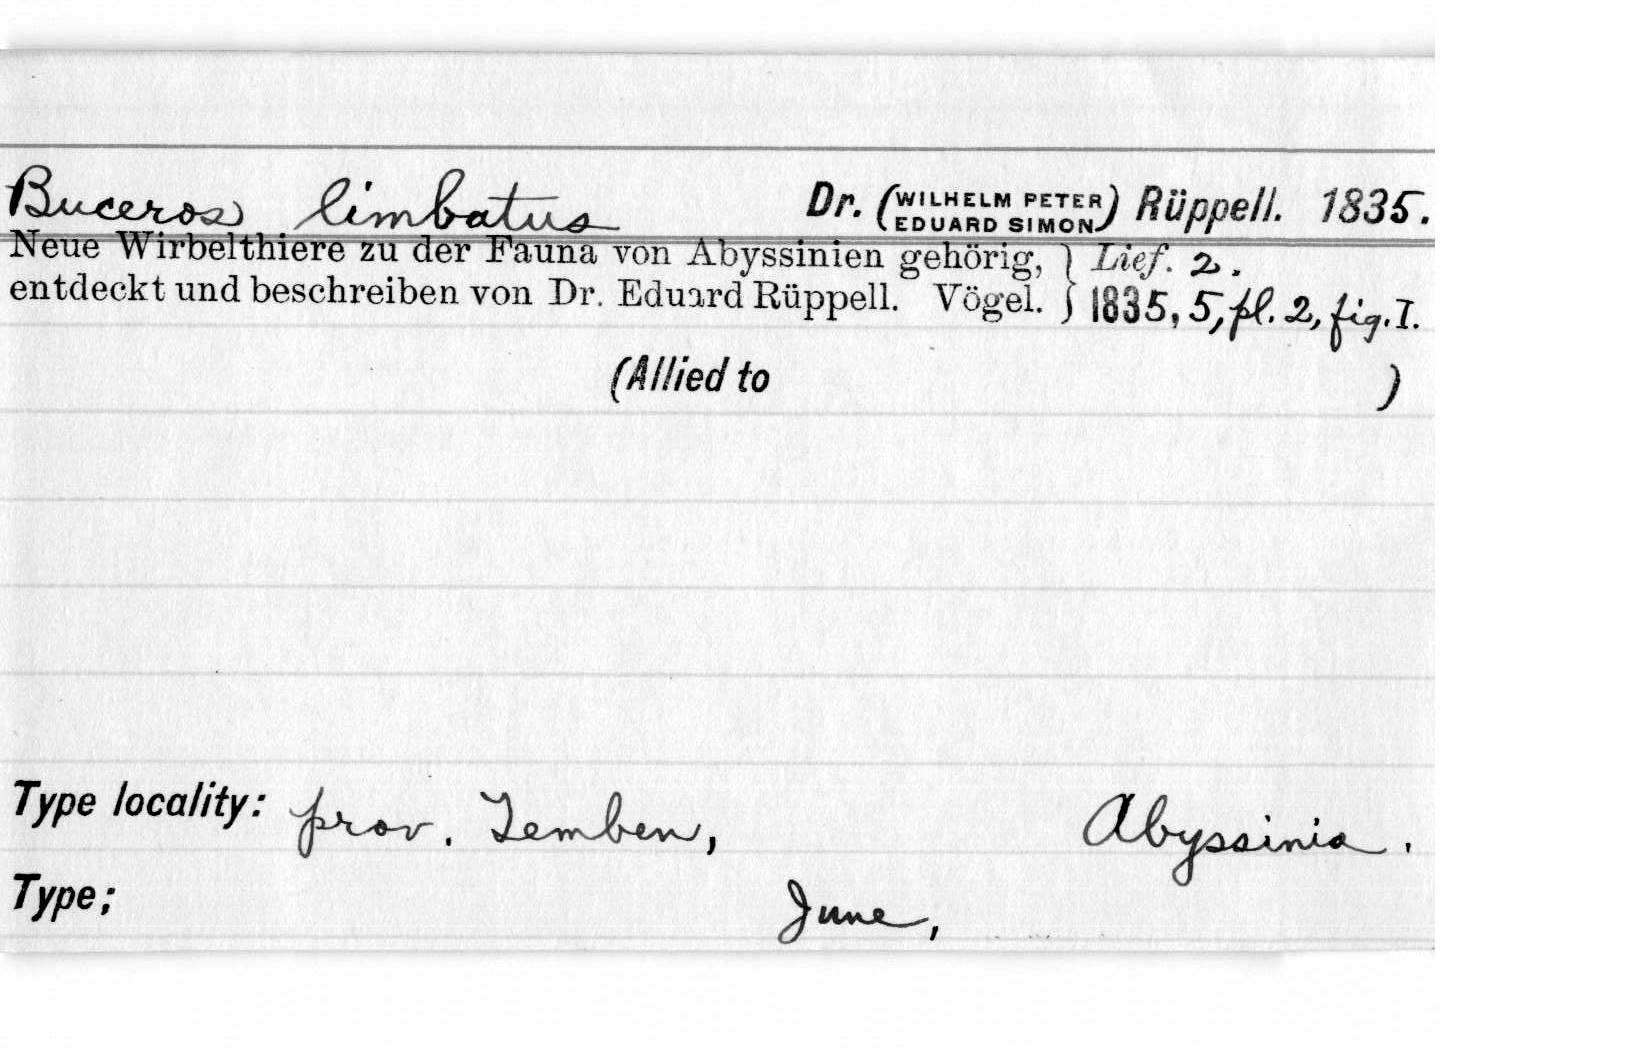 Buceros limbatus Dr. (WILHELM PETER EDUARD SIMON) Rüppell. 1835.
Neue Wirbelthiere zu der Fauna von Abyssinien gehörig, } Lief. 2.
entdeckt und beschreiben von Dr. Eduard Rüppell. Vögel. } 1835, 5, pl. 2, fig. I.
(Allied to )
Type locality: prov. Temben, Abyssinia.
Type; June,